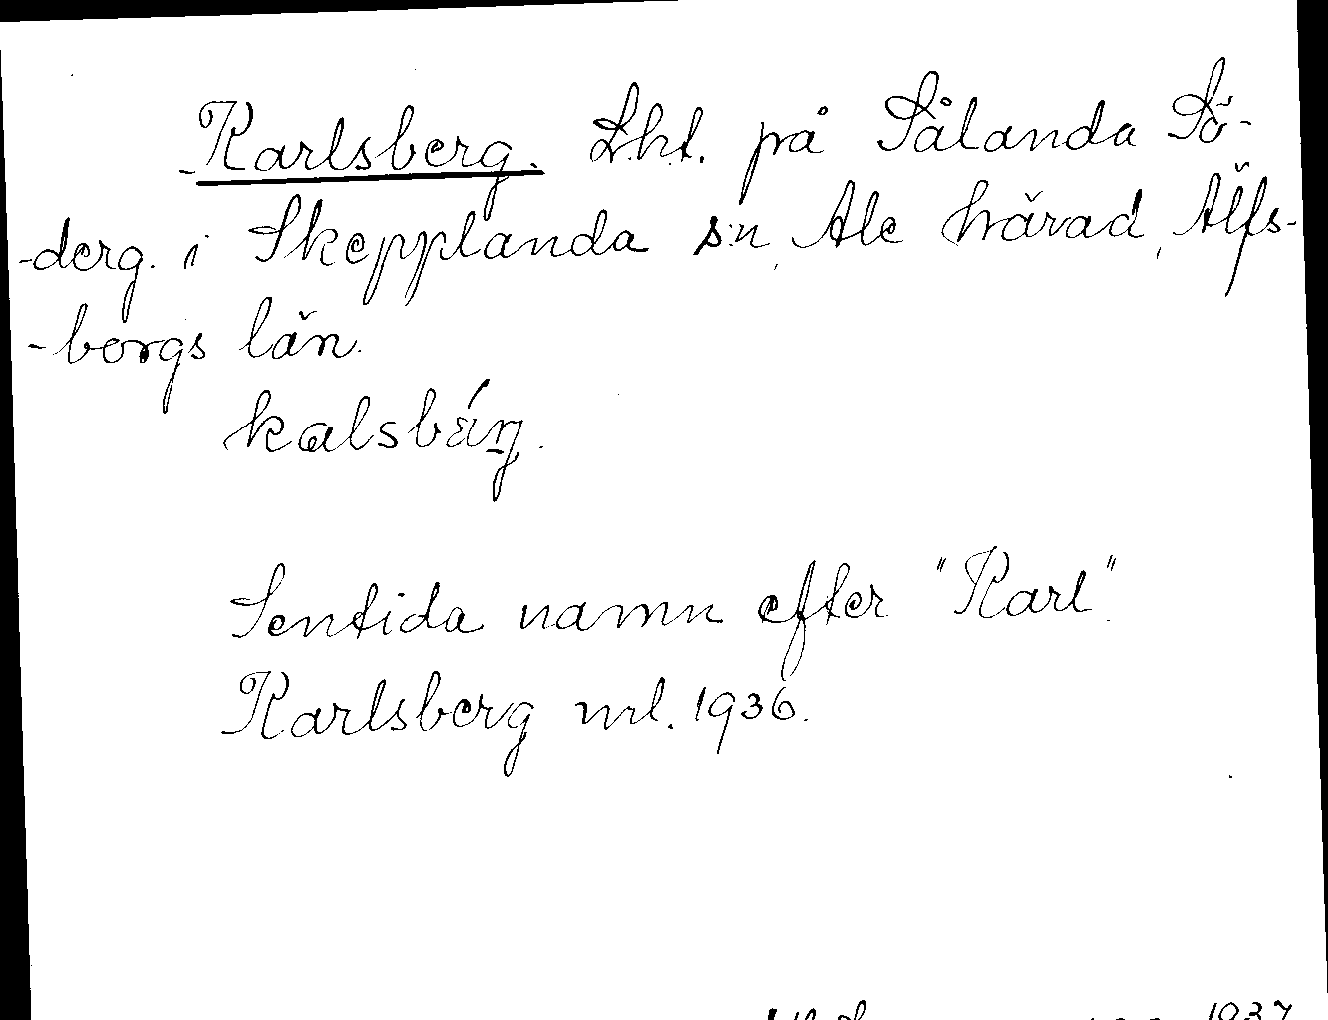 Karlsberg. Lht. på Sålanda Sö-
-derg. i Skepplanda s:n, Ale härad, Älfs-
-borgs län.
kalsbärj.
Sentida namn efter "Karl".
Karlsberg ml. 1936.
1937